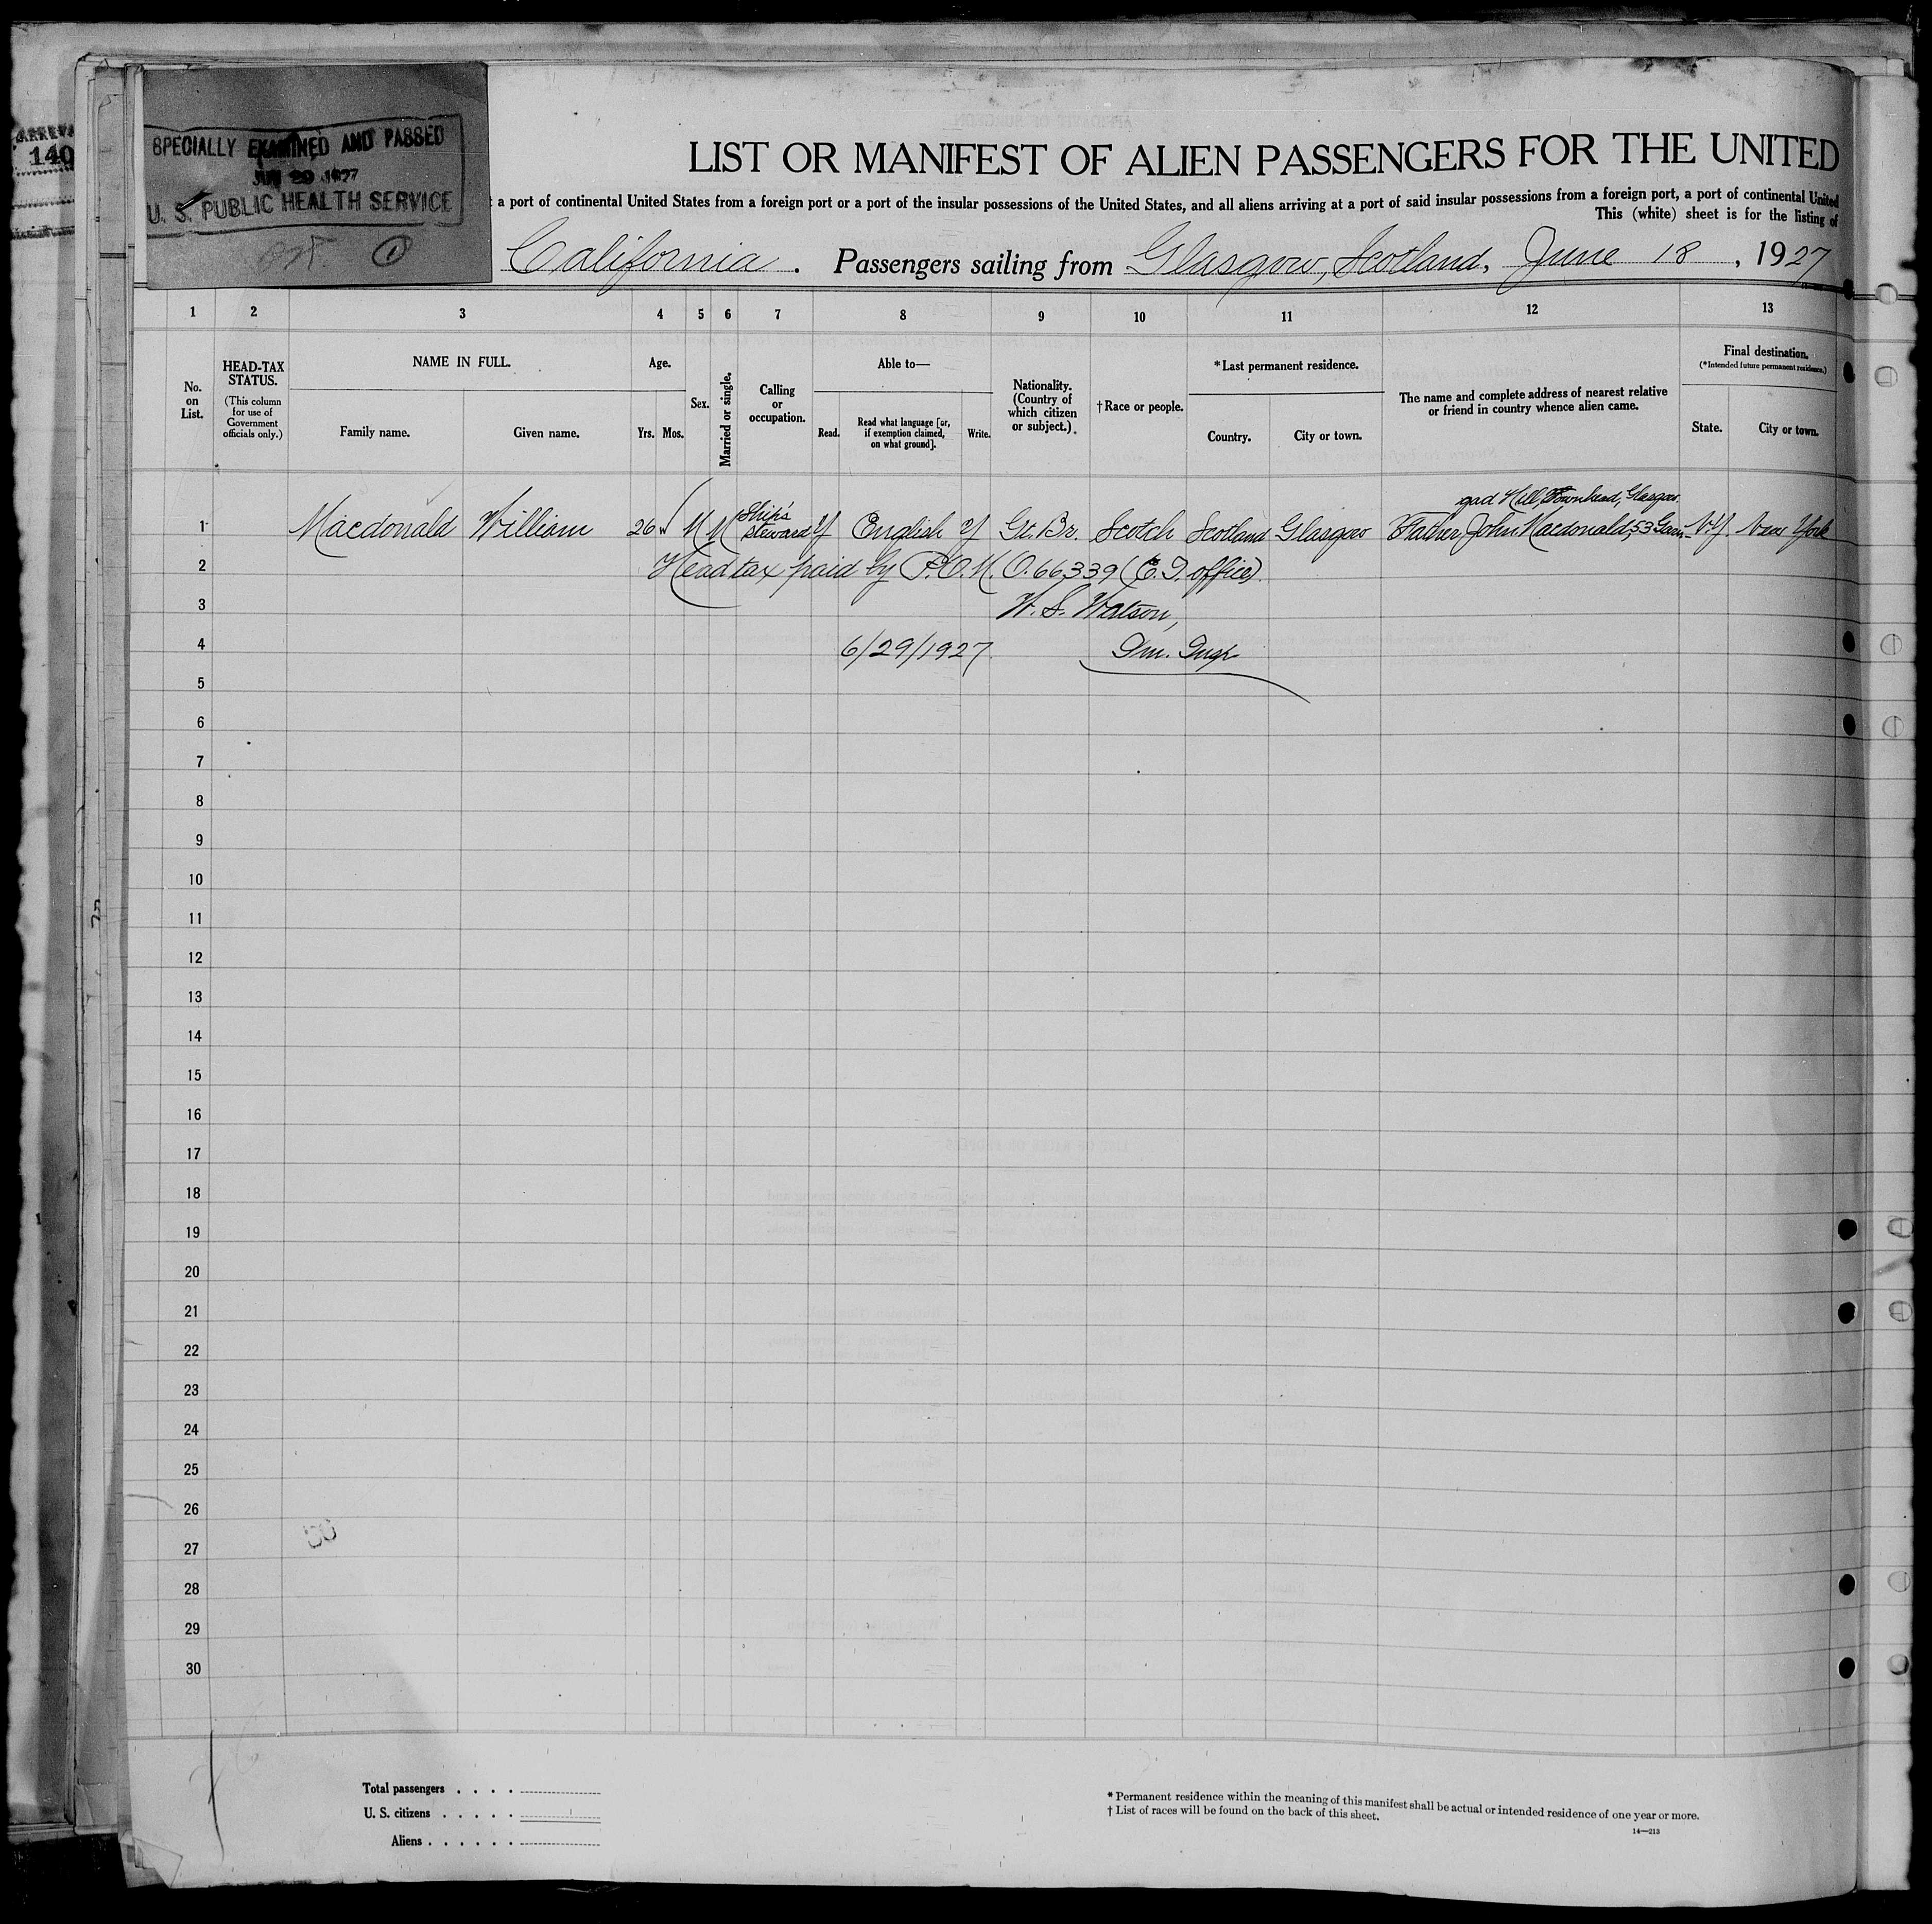 ARREVA
140
SPECIALLY EXAMINED AND PASSED
JUN 29 1927
U. S. PUBLIC HEALTH SERVICE
LIST OR MANIFEST OF ALIEN PASSENGERS FOR THE UNITED
a port of continental United States from a foreign port or a port of the insular possessions of the United States, and all aliens arriving at a port of said insular possessions from a foreign port, a port of continental United
This (white) sheet is for the listing of
California . Passengers sailing from Glasgow, Scotland, June 18 , 1927
1 2 3 4 5 6 7 8 9 10 11 12 13
No. on List.
HEAD-TAX STATUS.
(This column for use of Government officials only.)
NAME IN FULL.
Family name. Given name.
Age.
Yrs. Mos.
Sex.
Married or single.
Calling or occupation.
Able to—
Read. Read what language [or, if exemption claimed, on what ground]. Write.
Nationality. (Country of which citizen or subject.)
†Race or people.
*Last permanent residence.
Country. City or town.
The name and complete address of nearest relative or friend in country whence alien came.
Final destination.
(*Intended future permanent residence.)
State. City or town.
gad Hill, Townhead, Glasgow
1 Macdonald William 26 M M Ship's Steward Y English Y Gt. Br. Scotch Scotland Glasgow Father, John Macdonald, 53 Garn- N.Y. New York
2 Head tax paid by P.O.M.O. 66339 (E.I. office)
3 W. S. Watson,
4 6/29/1927 Im. Insp
5
6
7
8
9
10
11
12
13
14
15
16
17
18
19
20
21
22
23
24
25
26
27
28
29
30
Total passengers . . . .
U. S. citizens . . . . .
Aliens . . . . . .
* Permanent residence within the meaning of this manifest shall be actual or intended residence of one year or more.
† List of races will be found on the back of this sheet.
14—213